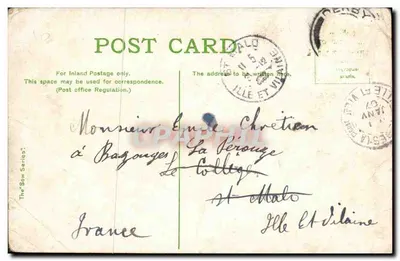 POST CARD.
For Inland Postage only.
This space may be used for correspondence.
(Post office Regulation.)
The address to be written here.
ST MALO
ILLE ET VILAINE
JANV
Monsieur Chrétien
à Bazouges La Pérouse
Le Collège
St Malo
Ille Et Vilaine
France
The "Bow Series"